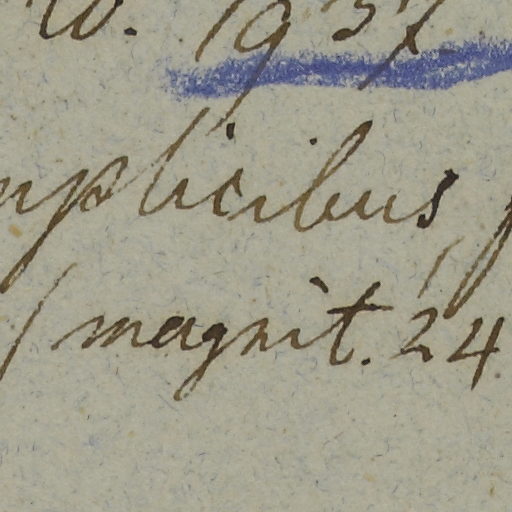 W. 1937
mplicibus,
/ magnit. 24